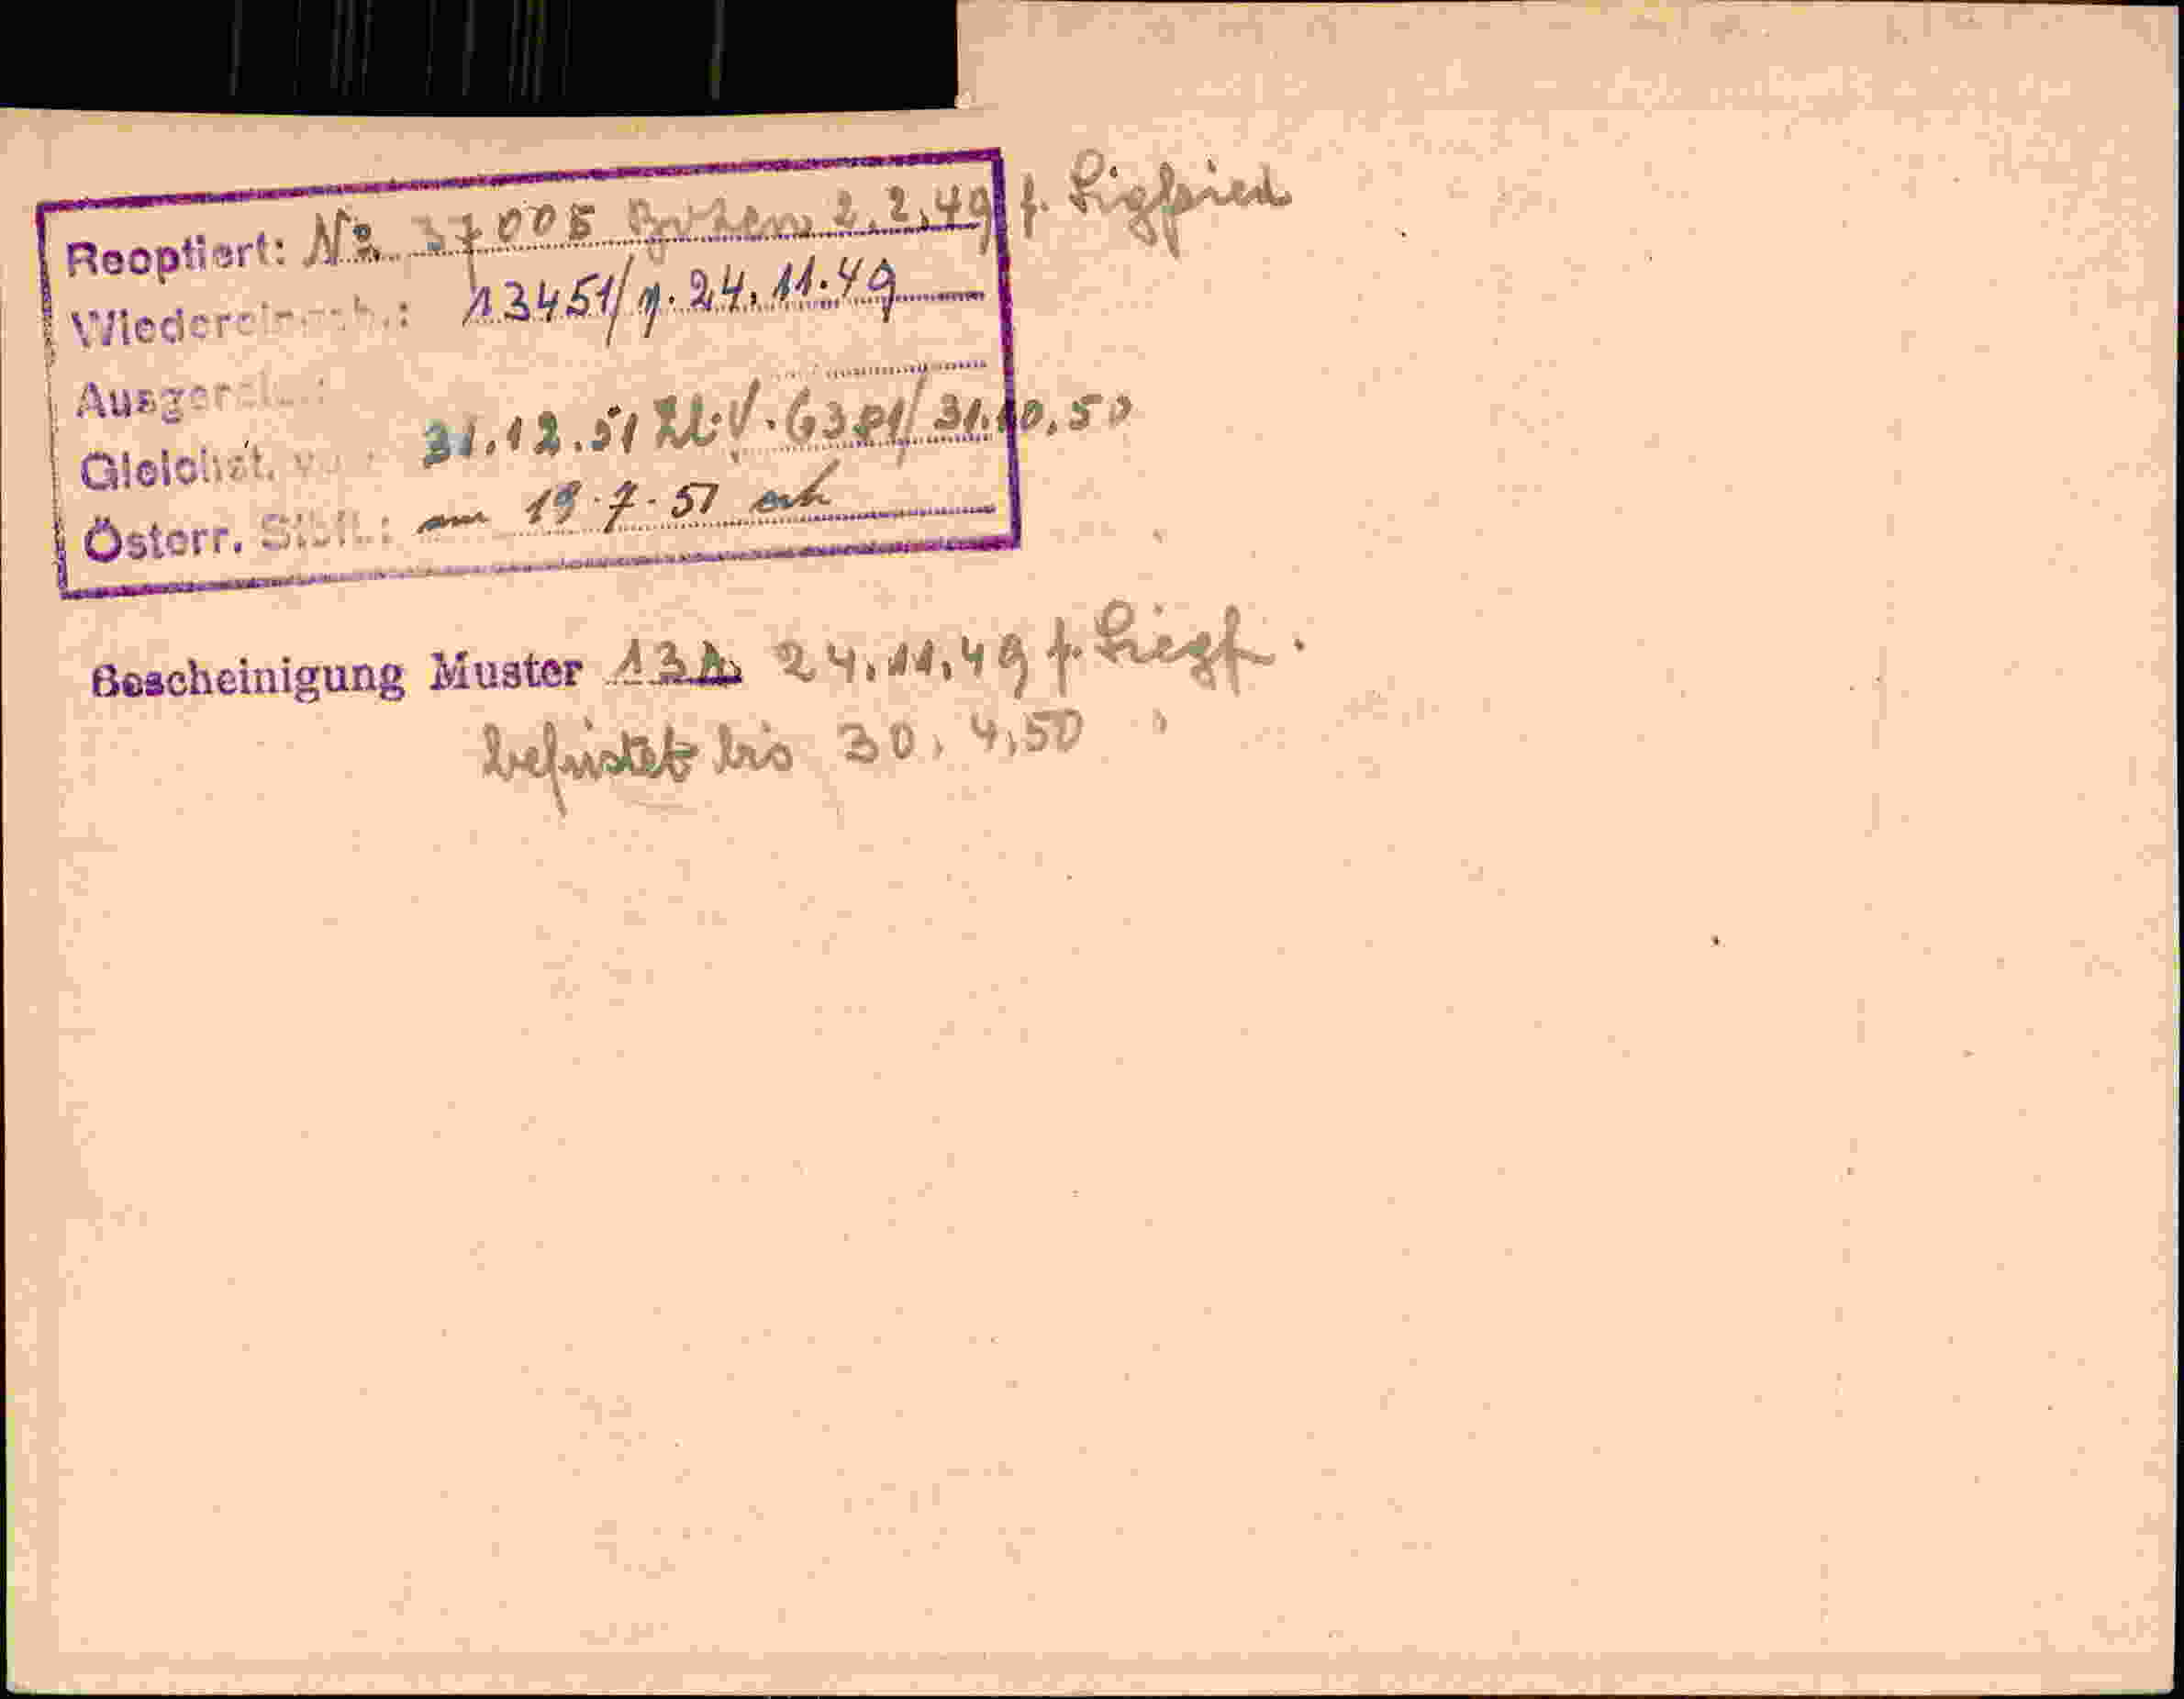 Reoptiert: Nr. 37005 Bozen 2.2.49 f. Sigfried
Wiedereingeb.: 13451/y. 24.11.49
Ausgereist:
Gleichst. von: 31.12.51 Zl. V. 6381/31.10.50
Österr. Stbft.: am 19.7.51
Bescheinigung Muster 13a 24.11.49 f. Siegf.
befristet bis 30.4.50